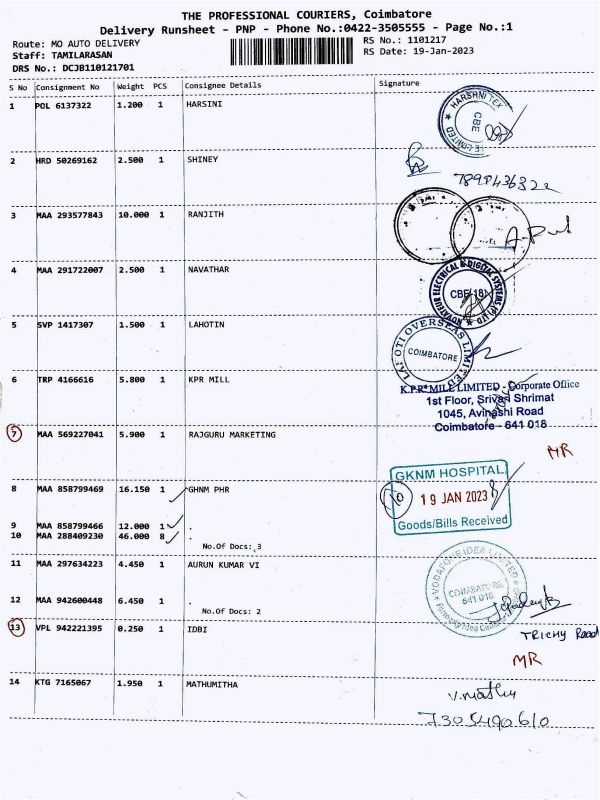 THE PROFESSIONAL COURIERS, Coimbatore
Delivery Runsheet - PNP - Phone No.:0422-3505555 - Page No.:1
Route: MO AUTO DELIVERY
RS No.: 1101217
Staff: TAMILARASAN
RS Date: 19-Jan-2023
DRS No.: DCJB110121701
S No Consignment No Weight PCS Consignee Details Signature
1 POL 6137322 1.200 1 HARSINI
HARSHNI TEX
CBE
2 HRD 50269162 2.500 1 SHINEY
3 MAA 293577843 10.000 1 RANJITH
4 MAA 291722007 2.500 1 NAVATHAR
NOVATHUR ELECTRICAL & DIGITAL SYSTEMS (P) LTD
CBE-18
5 SVP 1417307 1.500 1 LAHOTIN
LAHOTI OVERSEAS LIMITED
COIMBATORE
6 TRP 4166616 5.800 1 KPR MILL
K.P.R. MILL LIMITED - Corporate Office
1st Floor, Srivari Shrimat
1045, Avinashi Road
Coimbatore - 641 018
7 MAA 569227041 5.900 1 RAJGURU MARKETING
MR
8 MAA 858799469 16.150 1 GHNM PHR
GKNM HOSPITAL
19 JAN 2023
Goods/Bills Received
9 MAA 858799466 12.000 1 .
10 MAA 288409230 46.000 8 .
No.Of Docs: 3
11 MAA 297634223 4.450 1 AURUN KUMAR VI
VODAFONE IDEA LIMITED
COIMBATORE
641 018
12 MAA 942600448 6.450 1 .
No.Of Docs: 2
13 VPL 942221395 0.250 1 IDBI
TRICHY Road
MR
14 KTG 7165067 1.950 1 MATHUMITHA
V.Mathy
7305490610